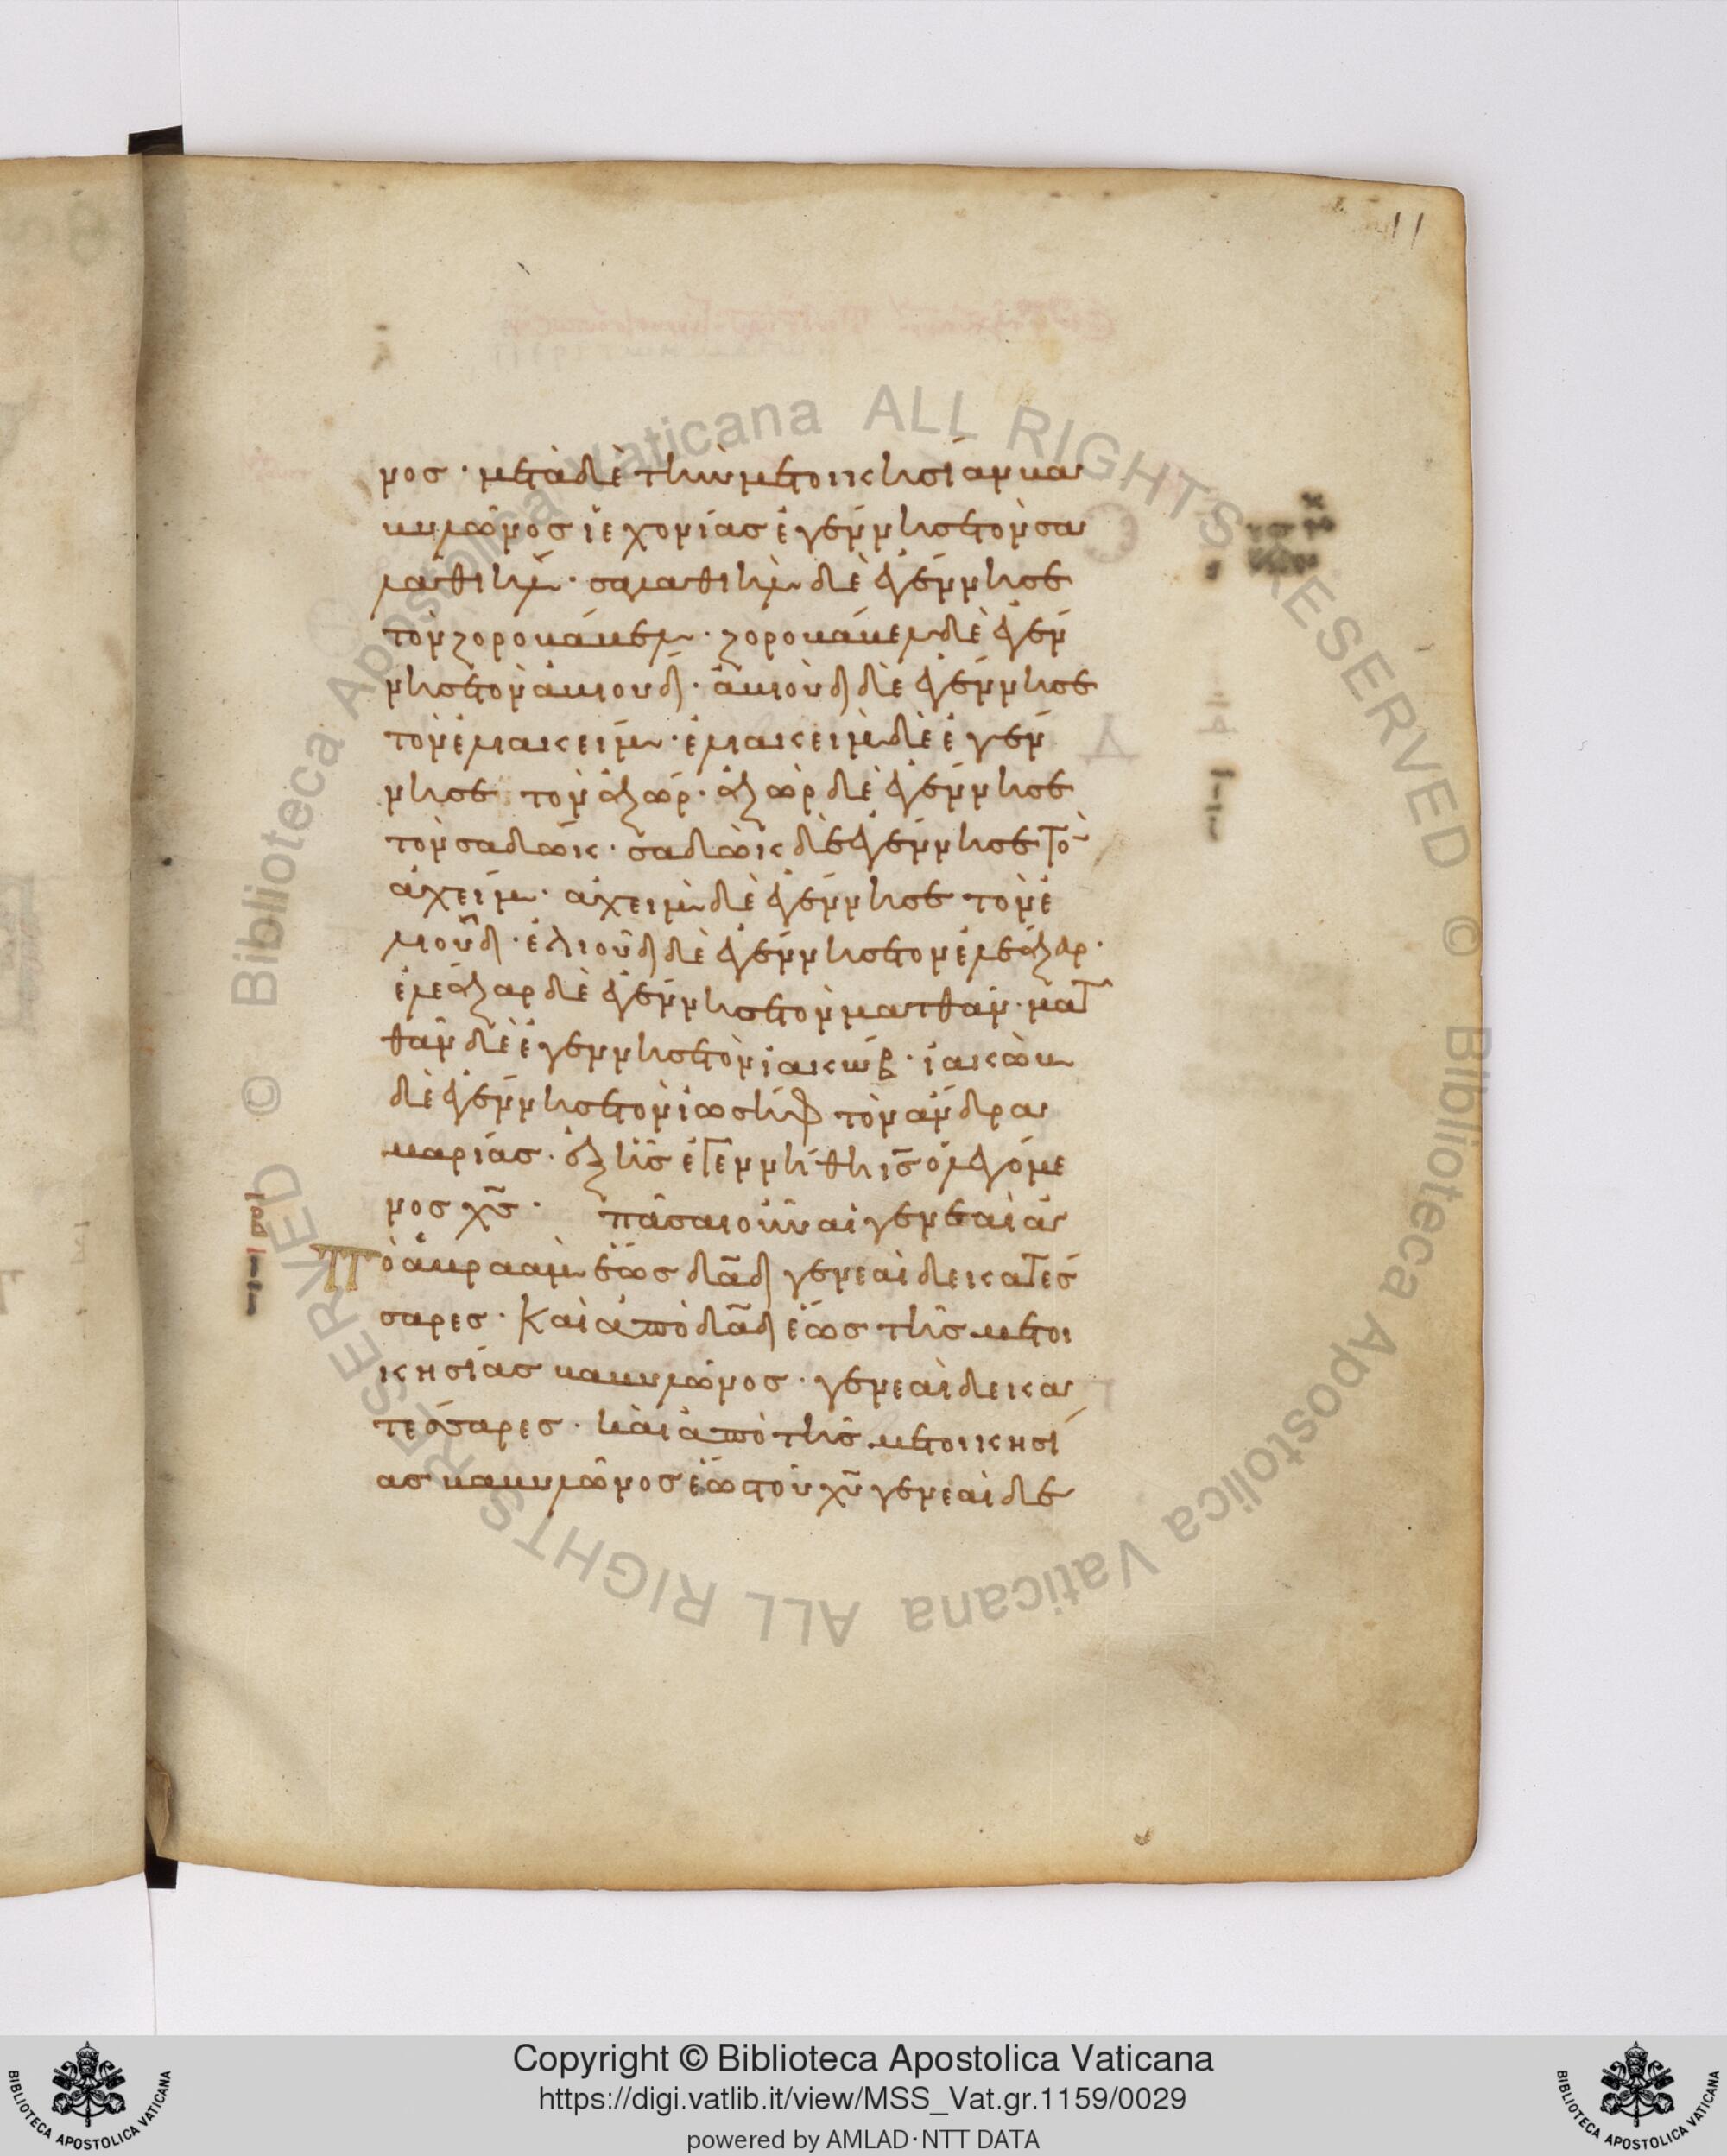 11
νος · μετὰ δὲ τὴν μετοικησίαν βα
βυλῶνος ἰεχονίας ἐγέννησε τὸν σα
λαθιήλ · σαλαθιὴλ δὲ ἐγέννησε
τὸν ζοροβάβελ · ζοροβάβελ δὲ ἐγέν
νησε τὸν ἀβιούδ · ἀβιοὺδ δὲ ἐγέννησε
τὸν ἐλιακείμ · ἐλιακεὶμ δὲ ἐγέν
νησε τὸν ἀζώρ · ἀζὼρ δὲ ἐγέννησε
τὸν σαδώκ · σαδὼκ δὲ ἐγέννησε το
ἀχείμ · ἀχεὶμ δὲ ἐγέννησε τὸν ἐ
λιούδ · ἐλιοὺδ δὲ ἐγέννησε τὸν ἐλεάζαρ ·
ἐλεάζαρ δὲ ἐγέννησε τὸν ματθάν · ματ
θὰν δὲ ἐγέννησε τὸν ἰακώβ · ἰακὼβ
δὲ ἐγέννησε τὸν ἰωσὴφ τὸν ἄνδρα
μαρίας · ἐξ ἧς ἐγεννήθη ις ὁ λεγόμε
νος χς · πᾶσαι οὖν αἱ γενεαὶ ἀ
πὸ ἀβραὰμ ἕως δαδ γενεαὶ δεκατέσ
σαρες · καὶ ἀπὸ δαδ ἕως τῆς μετοι
κησίας βαβυλῶνος · γενεαὶ δεκα
τέσσαρες · καὶ ἀπὸ τῆς μετοικησί
ας βαβυλῶνος ἕως τοῦ χυ γενεαὶ δε
Copyright © Biblioteca Apostolica Vaticana
https://digi.vatlib.it/view/MSS_Vat.gr.1159/0029
powered by AMLAD·NTT DATA
BIBLIOTECA APOSTOLICA VATICANA
BIBLIOTECA APOSTOLICA VATICANA
© Biblioteca Apostolica Vaticana ALL RIGHTS RESERVED © Biblioteca Apostolica Vaticana ALL RIGHTS RESERVED